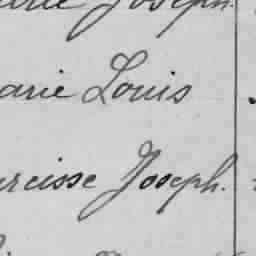 arie Joseph.
arie Louis
arcisse Joseph.